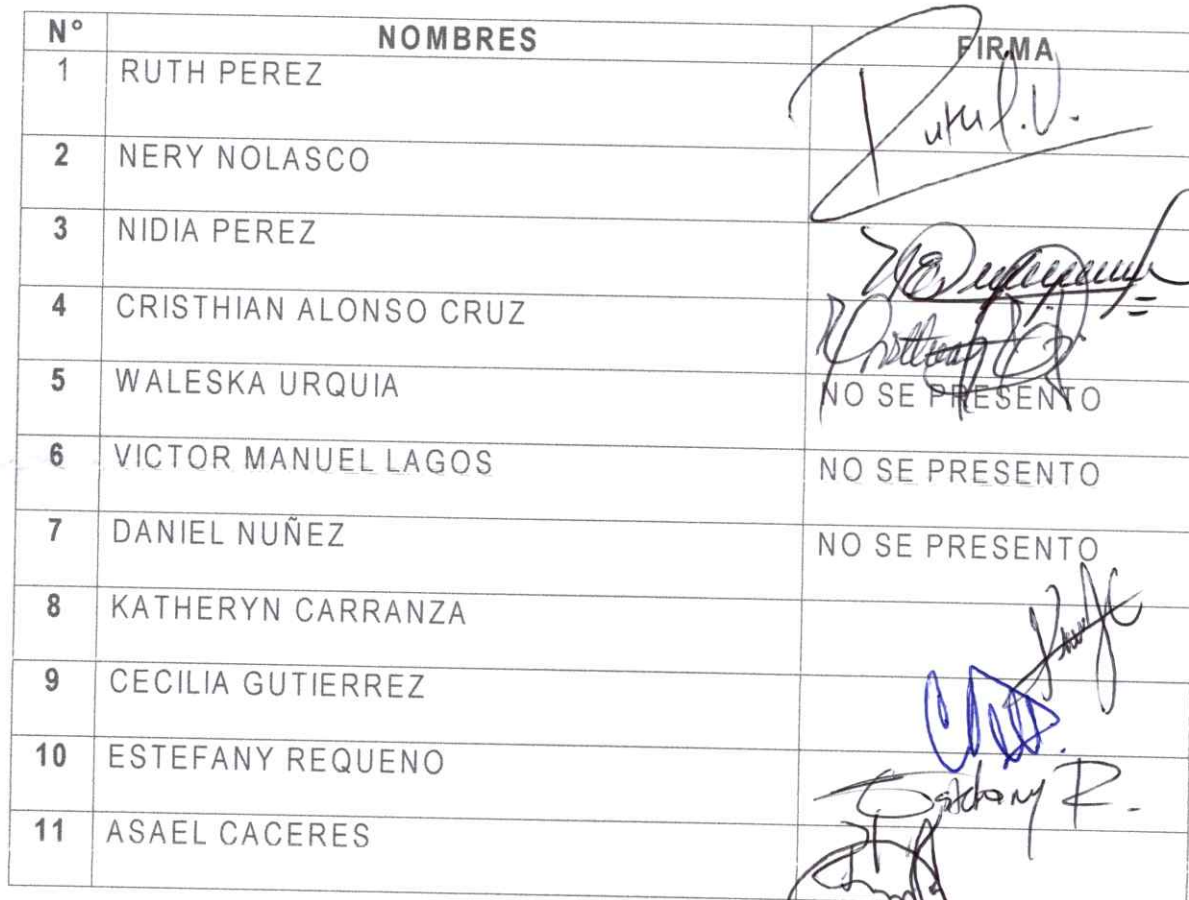 N° NOMBRES FIRMA
1 RUTH PEREZ
2 NERY NOLASCO
3 NIDIA PEREZ
4 CRISTHIAN ALONSO CRUZ
5 WALESKA URQUIA NO SE PRESENTO
6 VICTOR MANUEL LAGOS NO SE PRESENTO
7 DANIEL NUÑEZ NO SE PRESENTO
8 KATHERYN CARRANZA
9 CECILIA GUTIERREZ
10 ESTEFANY REQUENO
11 ASAEL CACERES